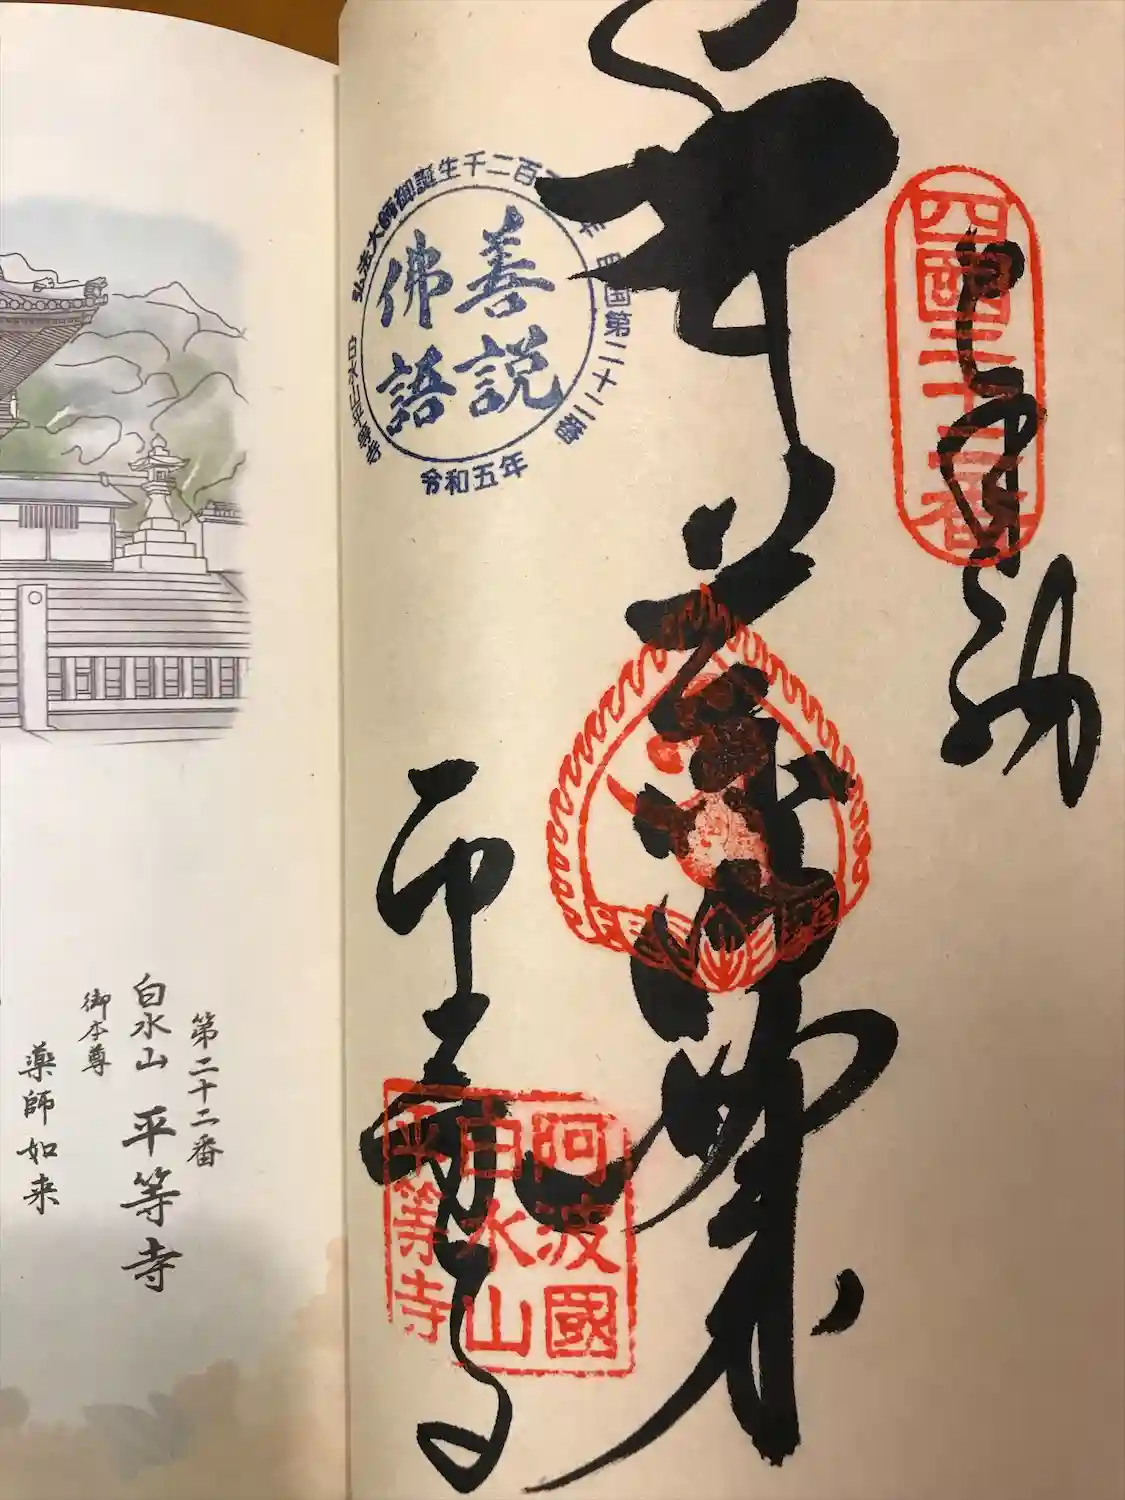 奉納
四國二十二番
平等寺
阿波國
白水山
平等寺
善説
佛語
弘法大師御誕生千二百五
年 四国第二十二番
白水山平等寺
令和五年
第二十二番
白水山 平等寺
御本尊
薬師如来